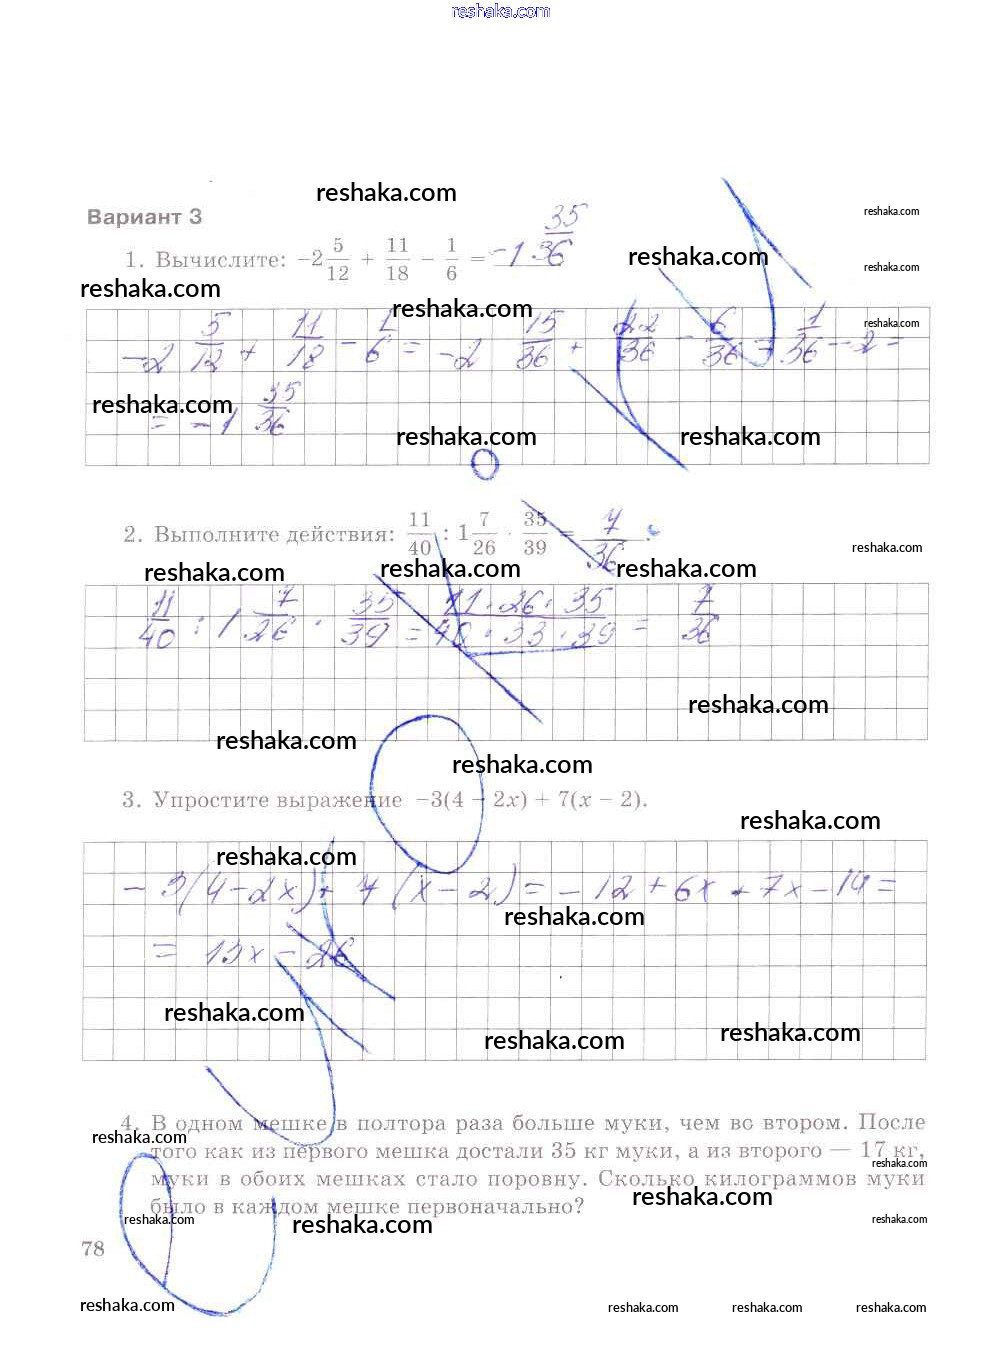 reshaka.com
reshaka.com
Вариант 3
reshaka.com
1. Вычислите: −2 5/12 + 11/18 − 1/6 = −1 35/36
reshaka.com
reshaka.com
reshaka.com
reshaka.com
−2 5/12 + 11/18 − 1/6 = −2 15/36 + 22/36 − 6/36 = 1/36 − 2 =
reshaka.com
= −1 35/36
reshaka.com
reshaka.com reshaka.com
2. Выполните действия: 11/40 : 1 7/26 · 35/39 = 7/36.
reshaka.com
reshaka.com reshaka.com reshaka.com
11/40 : 1 7/26 · 35/39 = 11·26·35/40·33·39 = 7/36
reshaka.com
reshaka.com
reshaka.com
3. Упростите выражение −3(4 − 2x) + 7(x − 2).
reshaka.com
reshaka.com
−3(4−2x)+7(x−2)=−12+6x+7x−14=
reshaka.com
= 13x − 26
reshaka.com
reshaka.com reshaka.com
4. В одном мешке в полтора раза больше муки, чем во втором. После
reshaka.com
того как из первого мешка достали 35 кг муки, а из второго — 17 кг,
reshaka.com
муки в обоих мешках стало поровну. Сколько килограммов муки
reshaka.com
было в каждом мешке первоначально?
reshaka.com reshaka.com reshaka.com
78
reshaka.com reshaka.com reshaka.com reshaka.com